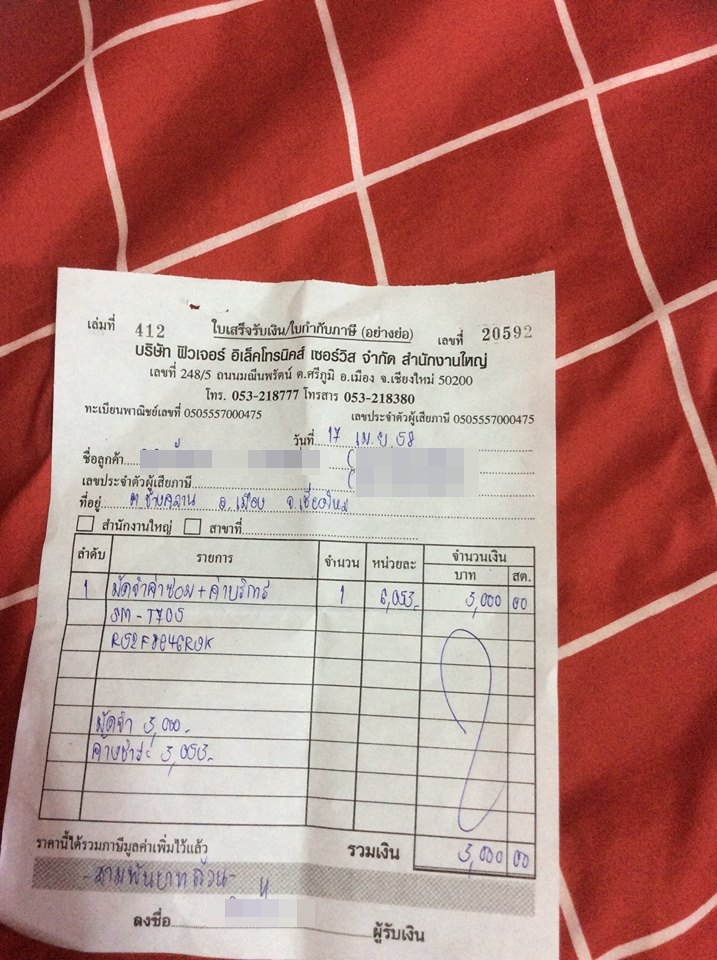 เล่มที่ 412 ใบเสร็จรับเงิน/ใบกำกับภาษี (อย่างย่อ) เลขที่ 20592
บริษัท ฟิวเจอร์ อิเล็คโทรนิคส์ เซอร์วิส จำกัด สำนักงานใหญ่
เลขที่ 248/5 ถนนมณีนพรัตน์ ต.ศรีภูมิ อ.เมือง จ.เชียงใหม่ 50200
โทร. 053-218777 โทรสาร 053-218380
ทะเบียนพาณิชย์เลขที่ 0505557000475 เลขประจำตัวผู้เสียภาษี 0505557000475
วันที่ 17 เม.ย. 58
ชื่อลูกค้า
เลขประจำตัวผู้เสียภาษี
ที่อยู่ ต.ช้างคลาน อ.เมือง จ.เชียงใหม่
สำนักงานใหญ่ สาขาที่
ลำดับ รายการ จำนวน หน่วยละ จำนวนเงิน
บาท สต.
1 มัดจำค่าซ่อม + ค่าบริการ 1 6,053.- 3,000 00
SM-T705
มัดจำ 3,000.-
ค้างชำระ 3,053.-
ราคานี้ได้รวมภาษีมูลค่าเพิ่มไว้แล้ว รวมเงิน 3,000 00
-สามพันบาทถ้วน-
ลงชื่อ ผู้รับเงิน